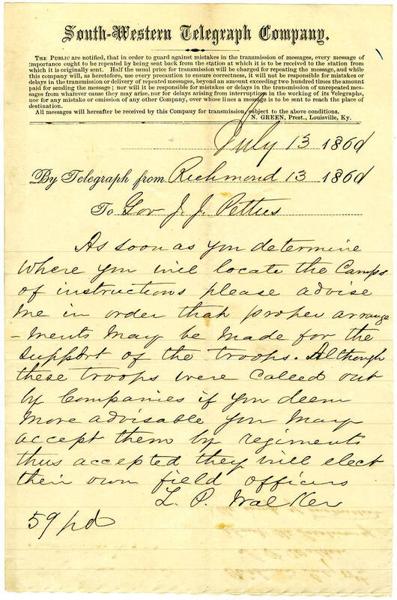 South-Western Telegraph Company.
THE PUBLIC are notified, that in order to guard against mistakes in the transmission of messages, every message of
importance ought to be repeated by being sent back from the station at which it is to be received to the station from
which it is originally sent. Half the usual price for transmission will be charged for repeating the message, and while
this company will, as heretofore, use every precaution to ensure correctness, it will not be responsible for mistakes or
delays in the transmission or delivery of repeated messages, beyond an amount exceeding two hundred times the amount
paid for sending the message; nor will it be responsible for mistakes or delays in the transmission of unrepeated messages
from whatever cause they may arise, nor for delays arising from interruption in the working of its Telegraphs,
nor for any mistake or omission of any other Company, over whose lines a message is to be sent to reach the place of
destination.
All messages will hereafter be received by this Company for transmission, subject to the above conditions.
N. GREEN, Prest., Louisville, Ky.
July 13 1861
By Telegraph from Richmond 13 1861
To Gov J. J. Pettus
As soon as you determine
where you will locate the Camps
of instructions please advise
me in order that proper arrange
-ments may be made for the
support of the troops. Although
these troops were called out
by Companies if you deem
more advisable you may
accept them by regiments
thus accepted they will elect
their own field officers
L. P. Walker
59 pd